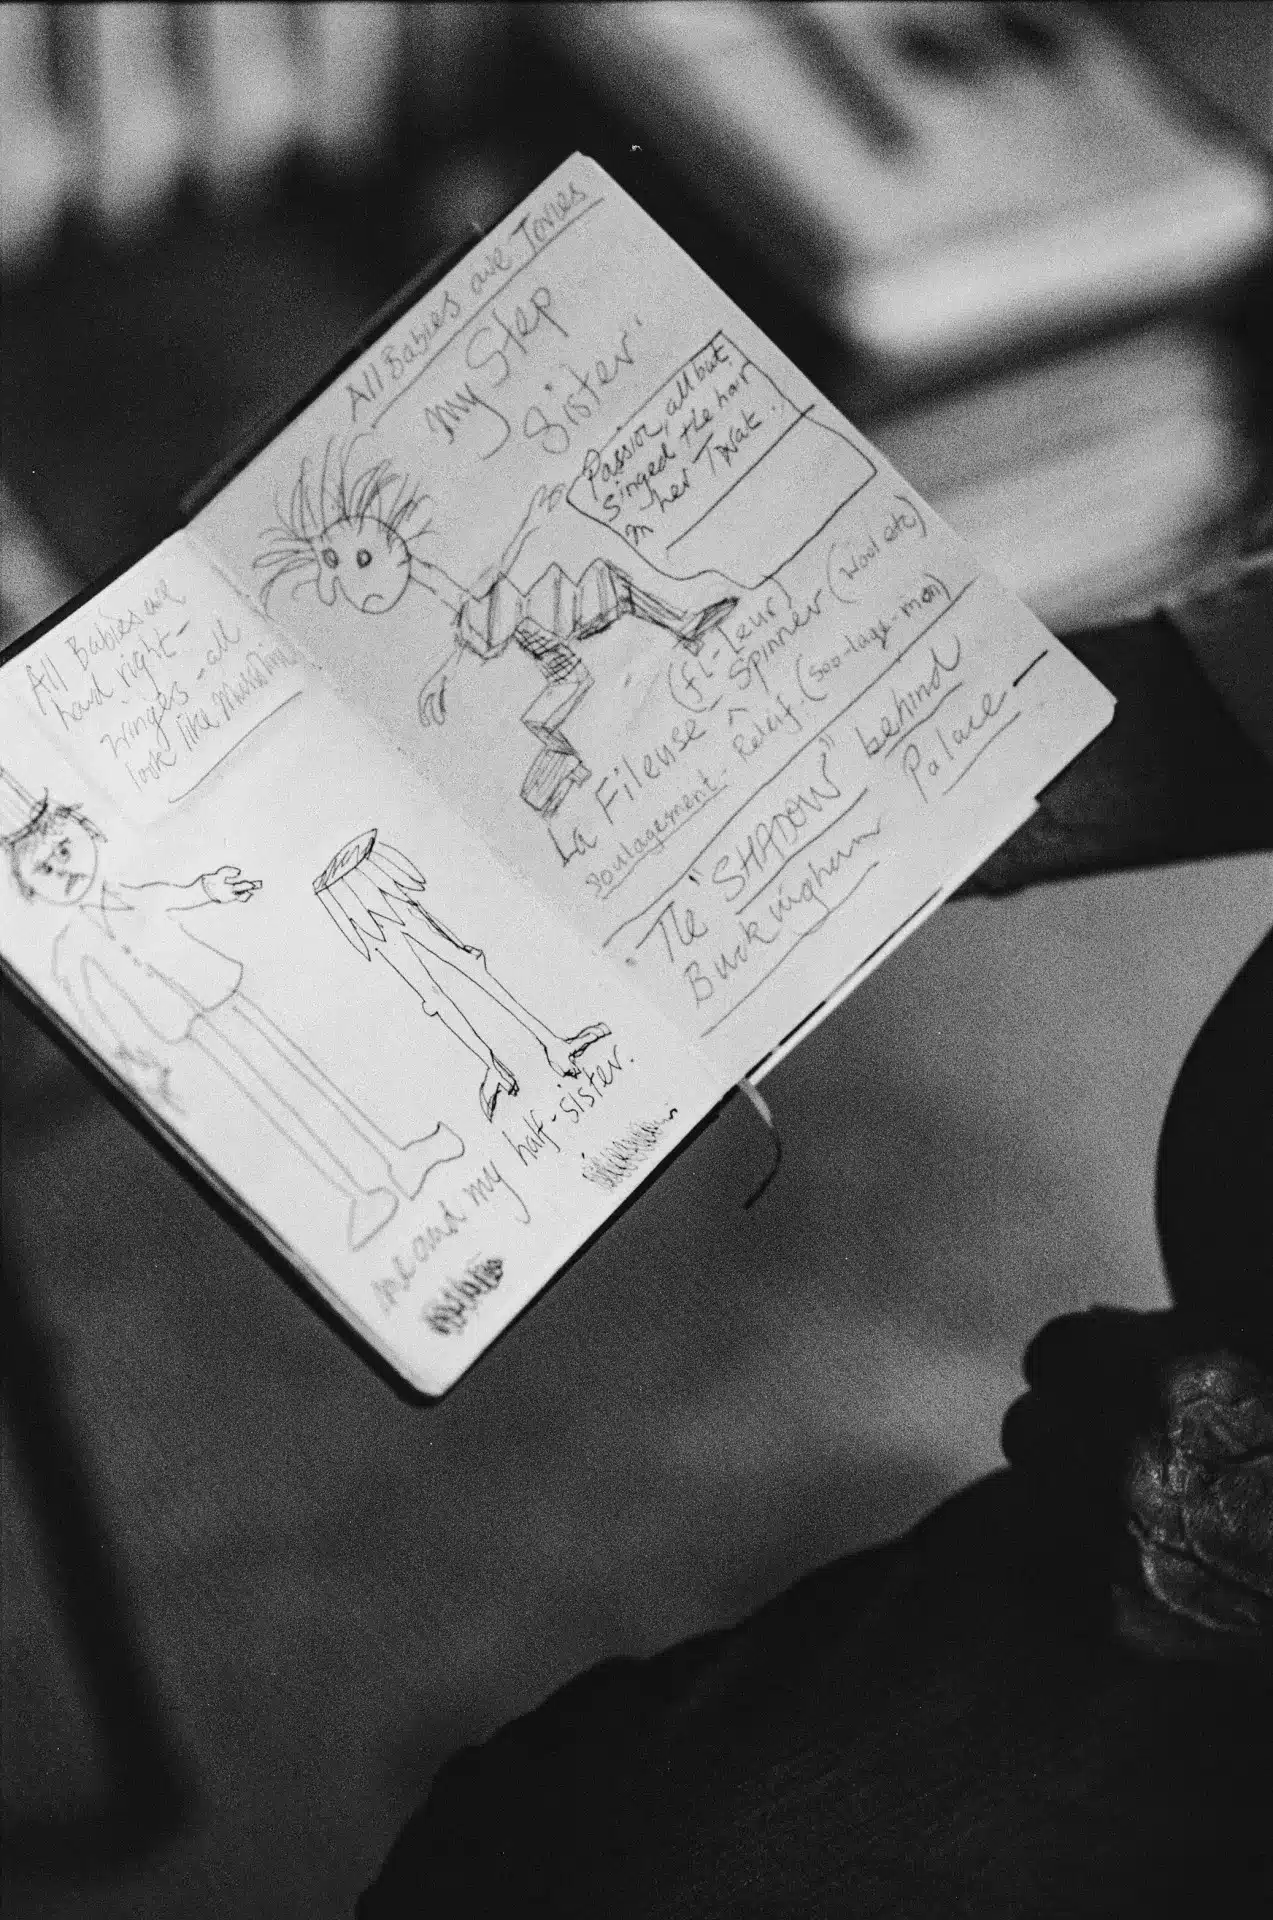 All Babies are
hard right-
wingers - all
look like Mussolini
me and my half-sister.
All Babies are Tories
My Step
Sister"
Passion, all but
singed the hair
in her Twat..
(fi-leur)
La Fileuse ^ Spinner (wool etc)
Soulagement - Releif - (soo-lage-mon)
"The "SHADOW" behind
Buckingham Palace -